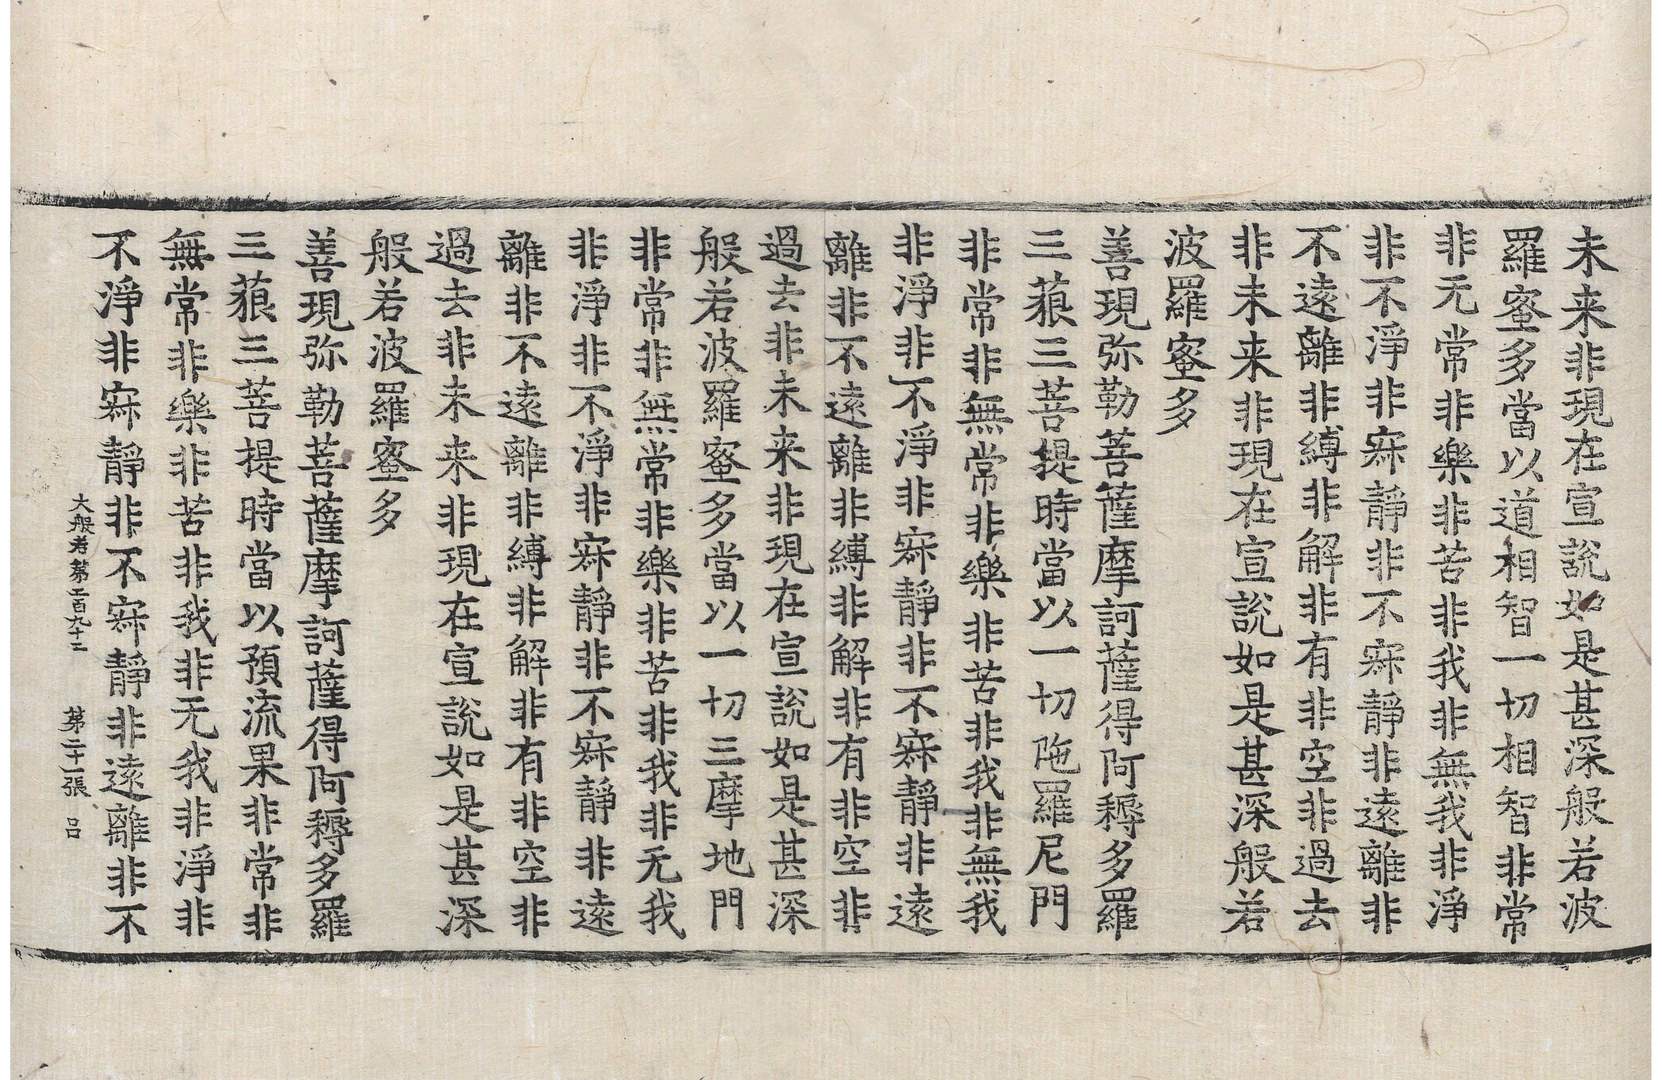 未来非現在宣說如是甚深般若波
羅蜜多當以道相智一切相智非常
非无常非樂非苦非我非無我非淨
非不淨非寂靜非不寂靜非遠離非
不遠離非縛非解非有非空非過去
非未来非現在宣說如是甚深般若
波羅蜜多
善現弥勒菩薩摩訶薩得阿耨多羅
三藐三菩提時當以一切陁羅尼門
非常非無常非樂非苦非我非無我
非淨非不淨非寂靜非不寂靜非遠
離非不遠離非縛非解非有非空非
過去非未来非現在宣說如是甚深
般若波羅蜜多當以一切三摩地門
非常非無常非樂非苦非我非无我
非淨非不淨非寂靜非不寂靜非遠
離非不遠離非縛非解非有非空非
過去非未来非現在宣說如是甚深
般若波羅蜜多
善現弥勒菩薩摩訶薩得阿耨多羅
三藐三菩提時當以預流果非常非
無常非樂非苦非我非无我非淨非
不淨非寂靜非不寂靜非遠離非不
大般若第二百九十二 第二十張 呂